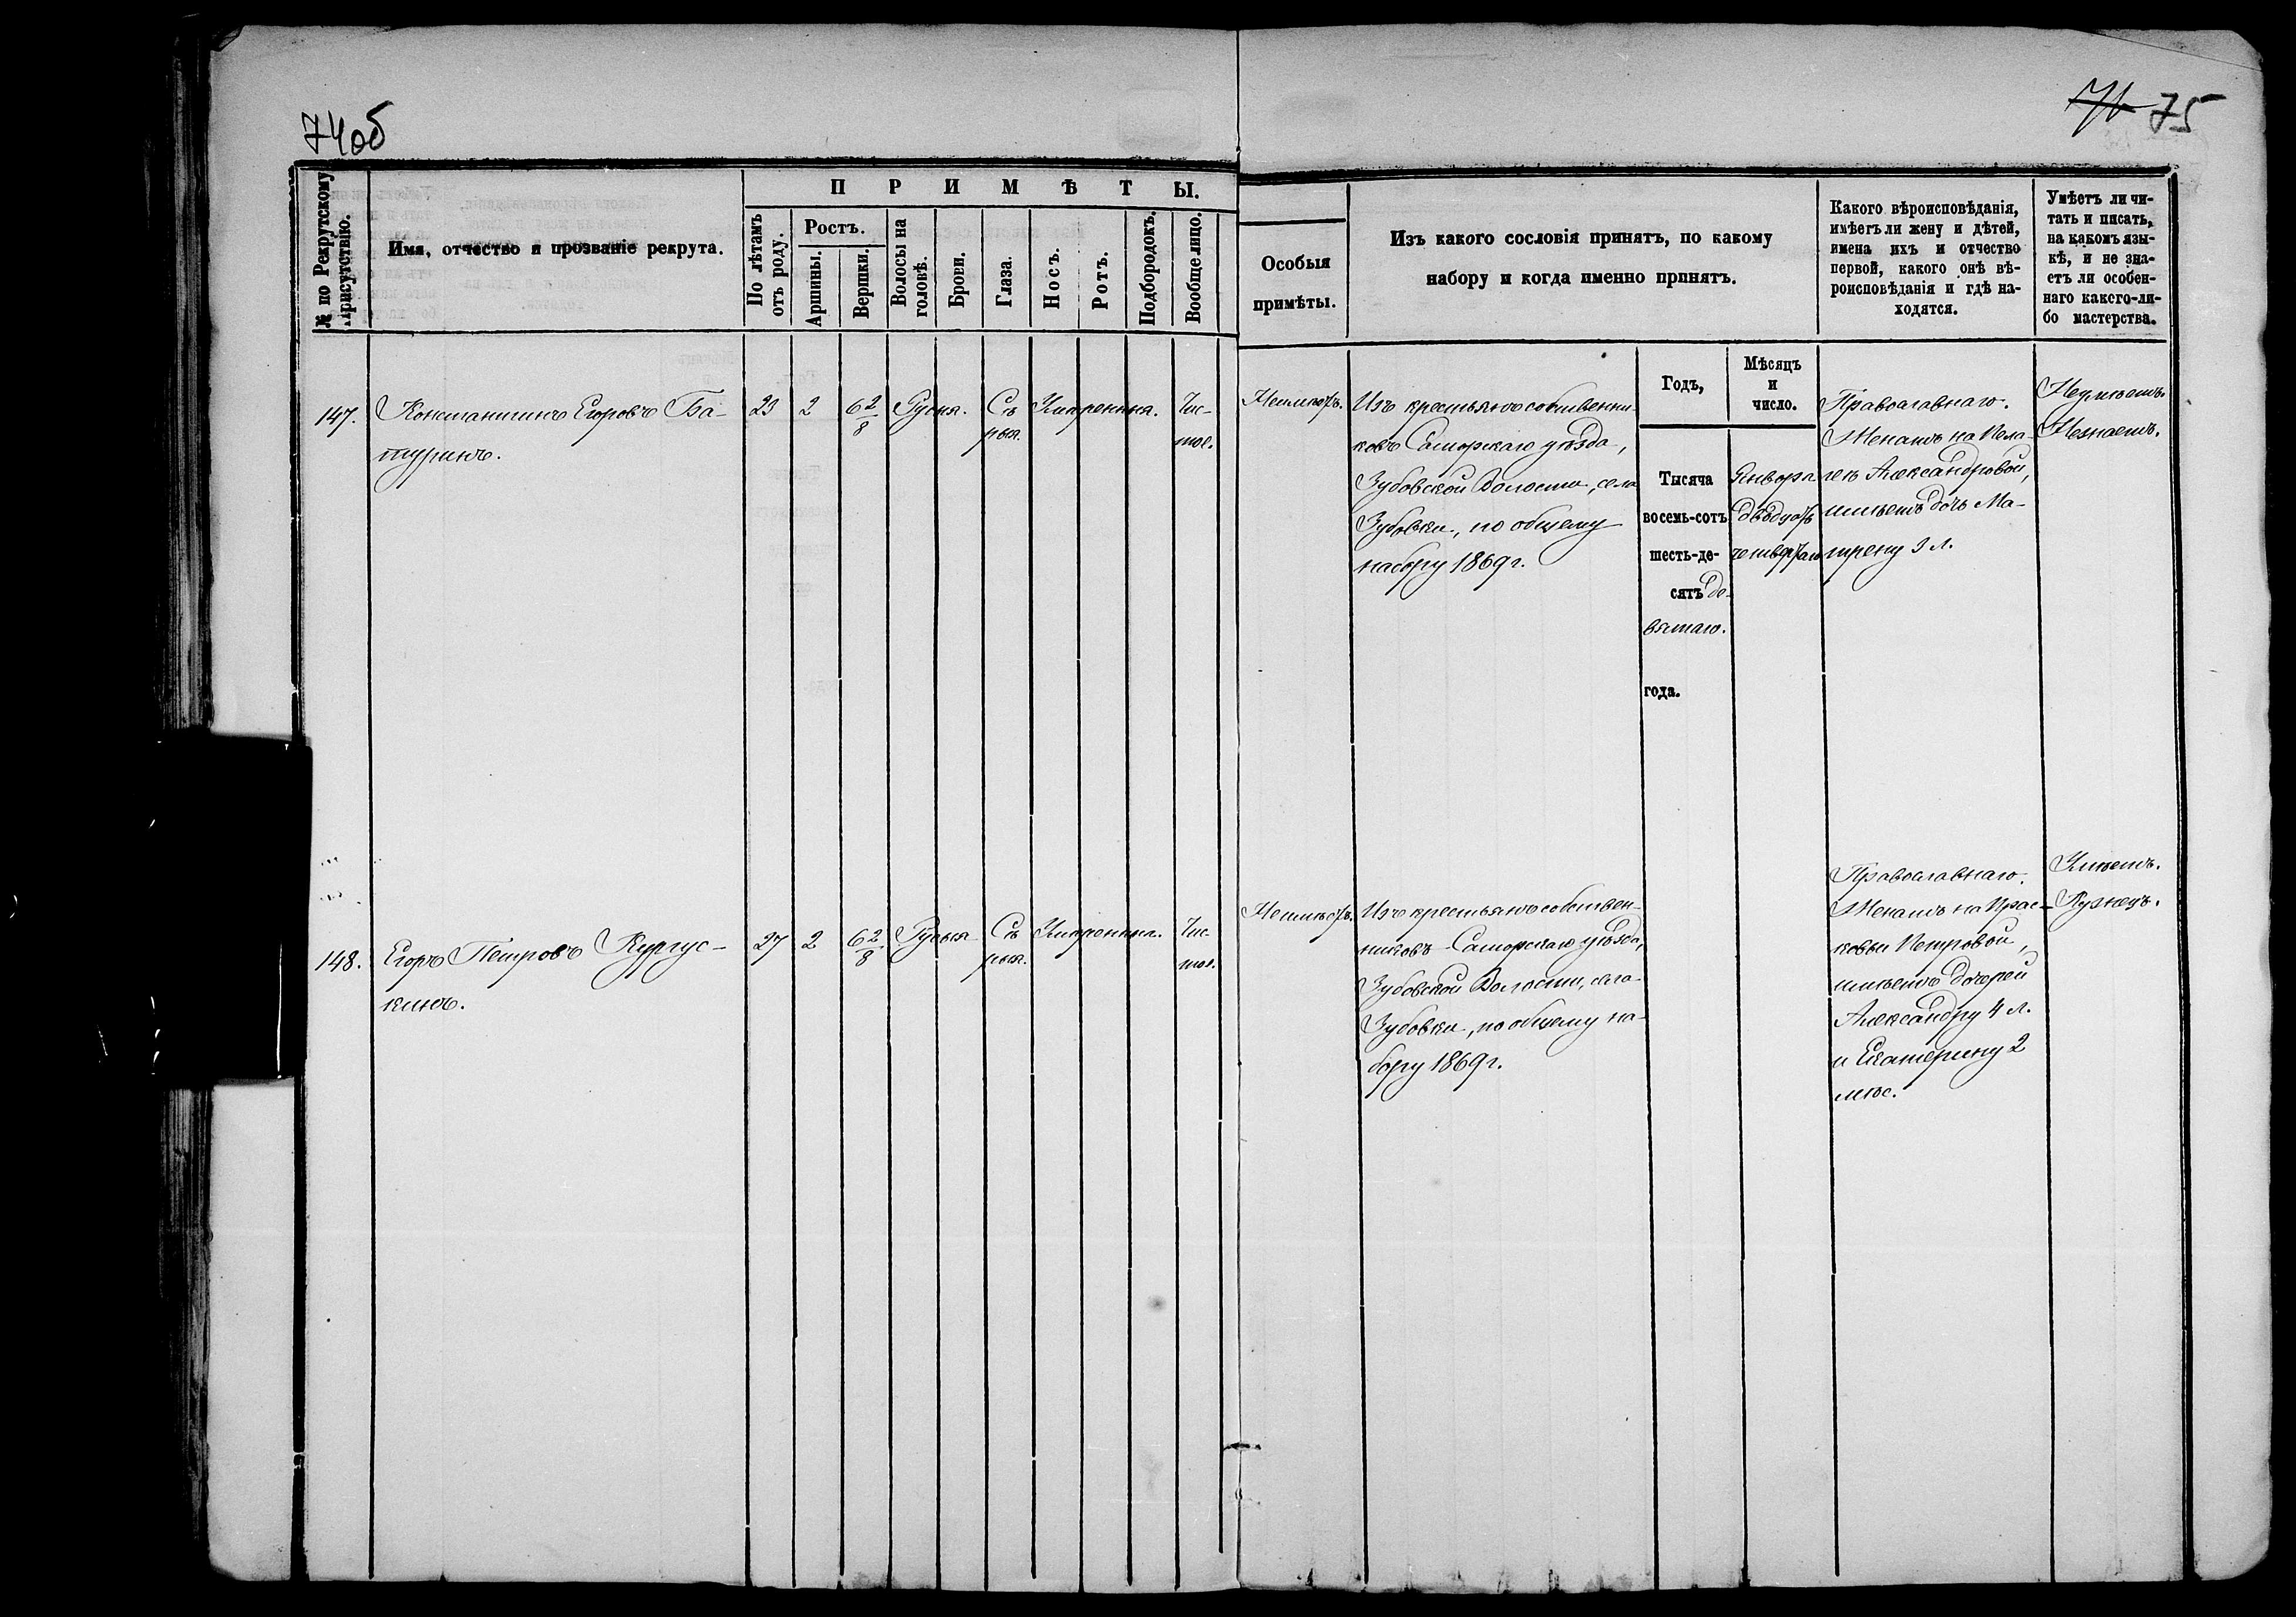 74об
75
№ по Рекрутскому присутствію.
Имя, отчество и прозваніе рекрута.
ПРИМѢТЫ.
По лѣтамъ отъ роду.
Ростъ.
Аршины.
Вершки.
Волосы на головѣ.
Брови.
Глаза.
Носъ.
Ротъ.
Подбородокъ.
Вообще лицо.
Особыя
примѣты.
Изъ какого сословія принятъ, по какому
набору и когда именно принятъ.
Какого вѣроисповѣданія,
имѣетъ ли жену и дѣтей,
имена ихъ и отчество
первой, какого онѣ вѣ-
роисповѣданія и гдѣ на-
ходятся.
Умѣетъ ли чи-
тать и писать,
на какомъ язы-
кѣ, и не зна-
етъ ли особен-
наго какого-ли-
бо мастерства.
147.
Константинъ Егоровъ Ба-
туринъ.
23
2
6 2/8
Русыя.
Сѣ
рыя.
Умѣренныя.
Чис-
тое.
Неимѣетъ.
Изъ крестьянъ собственни-
ковъ Самарскаго уѣзда,
Зубовской Волости, села
Зубовки, по общему
набору 1869 г.
Годъ,
Тысяча
восемь-сотъ
шесть-де-
сятъ де-
вятаго.
года.
Мѣсяцъ
и
число.
Января
двадцать
четвертаго
Православнаго.
Женатъ на Пела-
геѣ Александровой,
имѣетъ дочь Ма-
трену 3 л.
Неумѣетъ.
Незнаетъ.
148.
Егоръ Петровъ Кургус-
кинъ.
27
2
6 2/8
Русыя
Сѣ
рыя.
Умѣренныя.
Чис-
тое.
Неимѣетъ.
Изъ крестьянъ собствен-
никовъ Самарскаго уѣзда,
Зубовской Волости, села
Зубовки, по общему на-
бору 1869 г.
Православнаго.
Женатъ на Прас-
ковьи Петровой,
имѣетъ дочерей
Александру 4 л.
и Екатерину 2
мѣс.
Умѣетъ.
Кузнецъ.